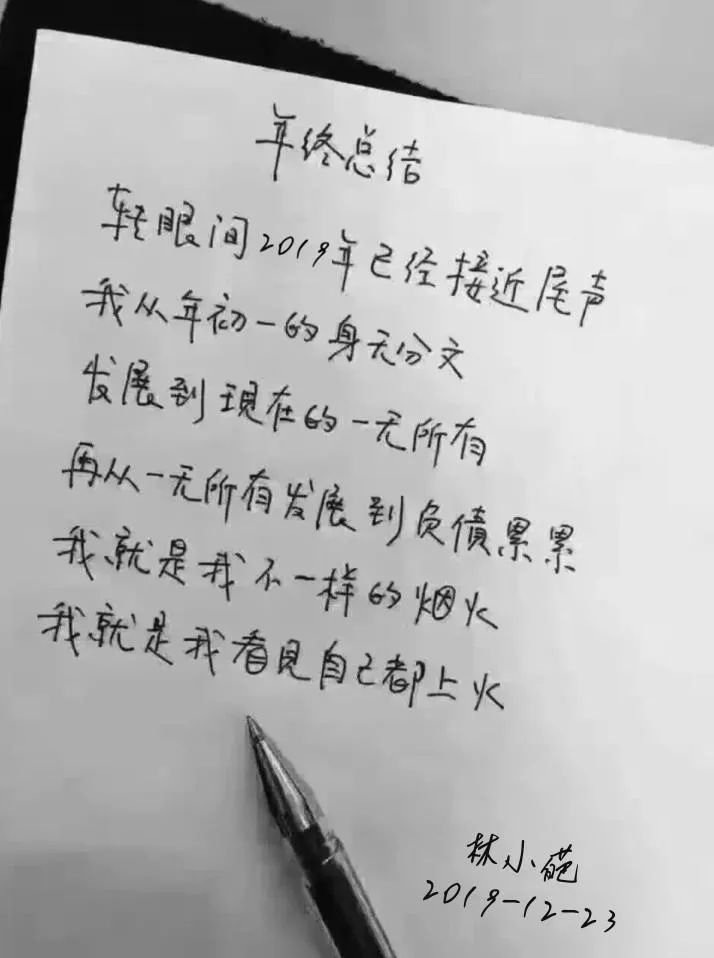 年终总结
转眼间2019年已经接近尾声
我从年初一的身无分文
发展到现在的一无所有
再从一无所有发展到负债累累
我就是我不一样的烟火
我就是我看见自己都上火
林小葩
2019-12-23